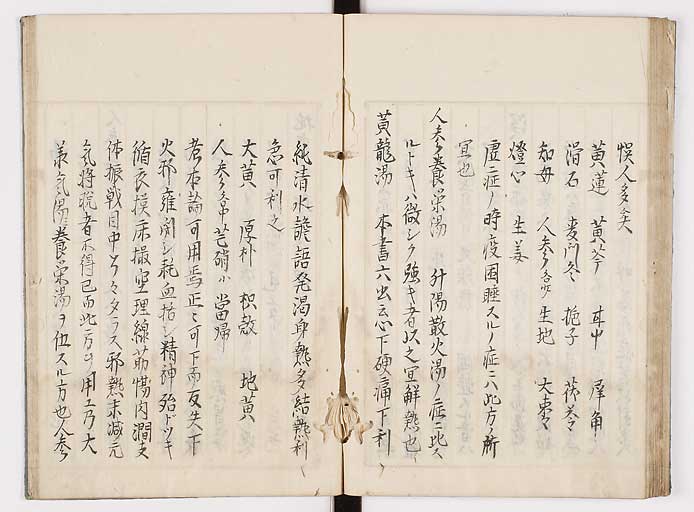 誤人多矣
黄蓮 黄芩 甘中 犀角
滑石 麦門冬 梔子 茯苓
知母 人参 生地 大棗
燈心 生姜
虚症ノ時疫困睡スルノ症ニハ此方ノ所
宜也
人参養栄湯 升陽散火湯ノ症ニ比ス
ルトキハ微シク強キ者以之宜解熱也
黄龍湯 本書六出云心下硬痛下利
純清水譫語発渇身熱多結熱利
急可利之
大黄 厚朴 枳殻 地黄
人参 芒硝 當帰
者本論可用焉正ニ可下而反失下
火邪壅閉シ耗血搐シ精神殆ドツキ
循衣摸床撮空理線筋惕肉瞤支
体振戦目中 タラス邪熱未减元
気将脱者不得已而此方ヲ用エ乃大
承気湯養栄湯ヲ伍スル方也人参